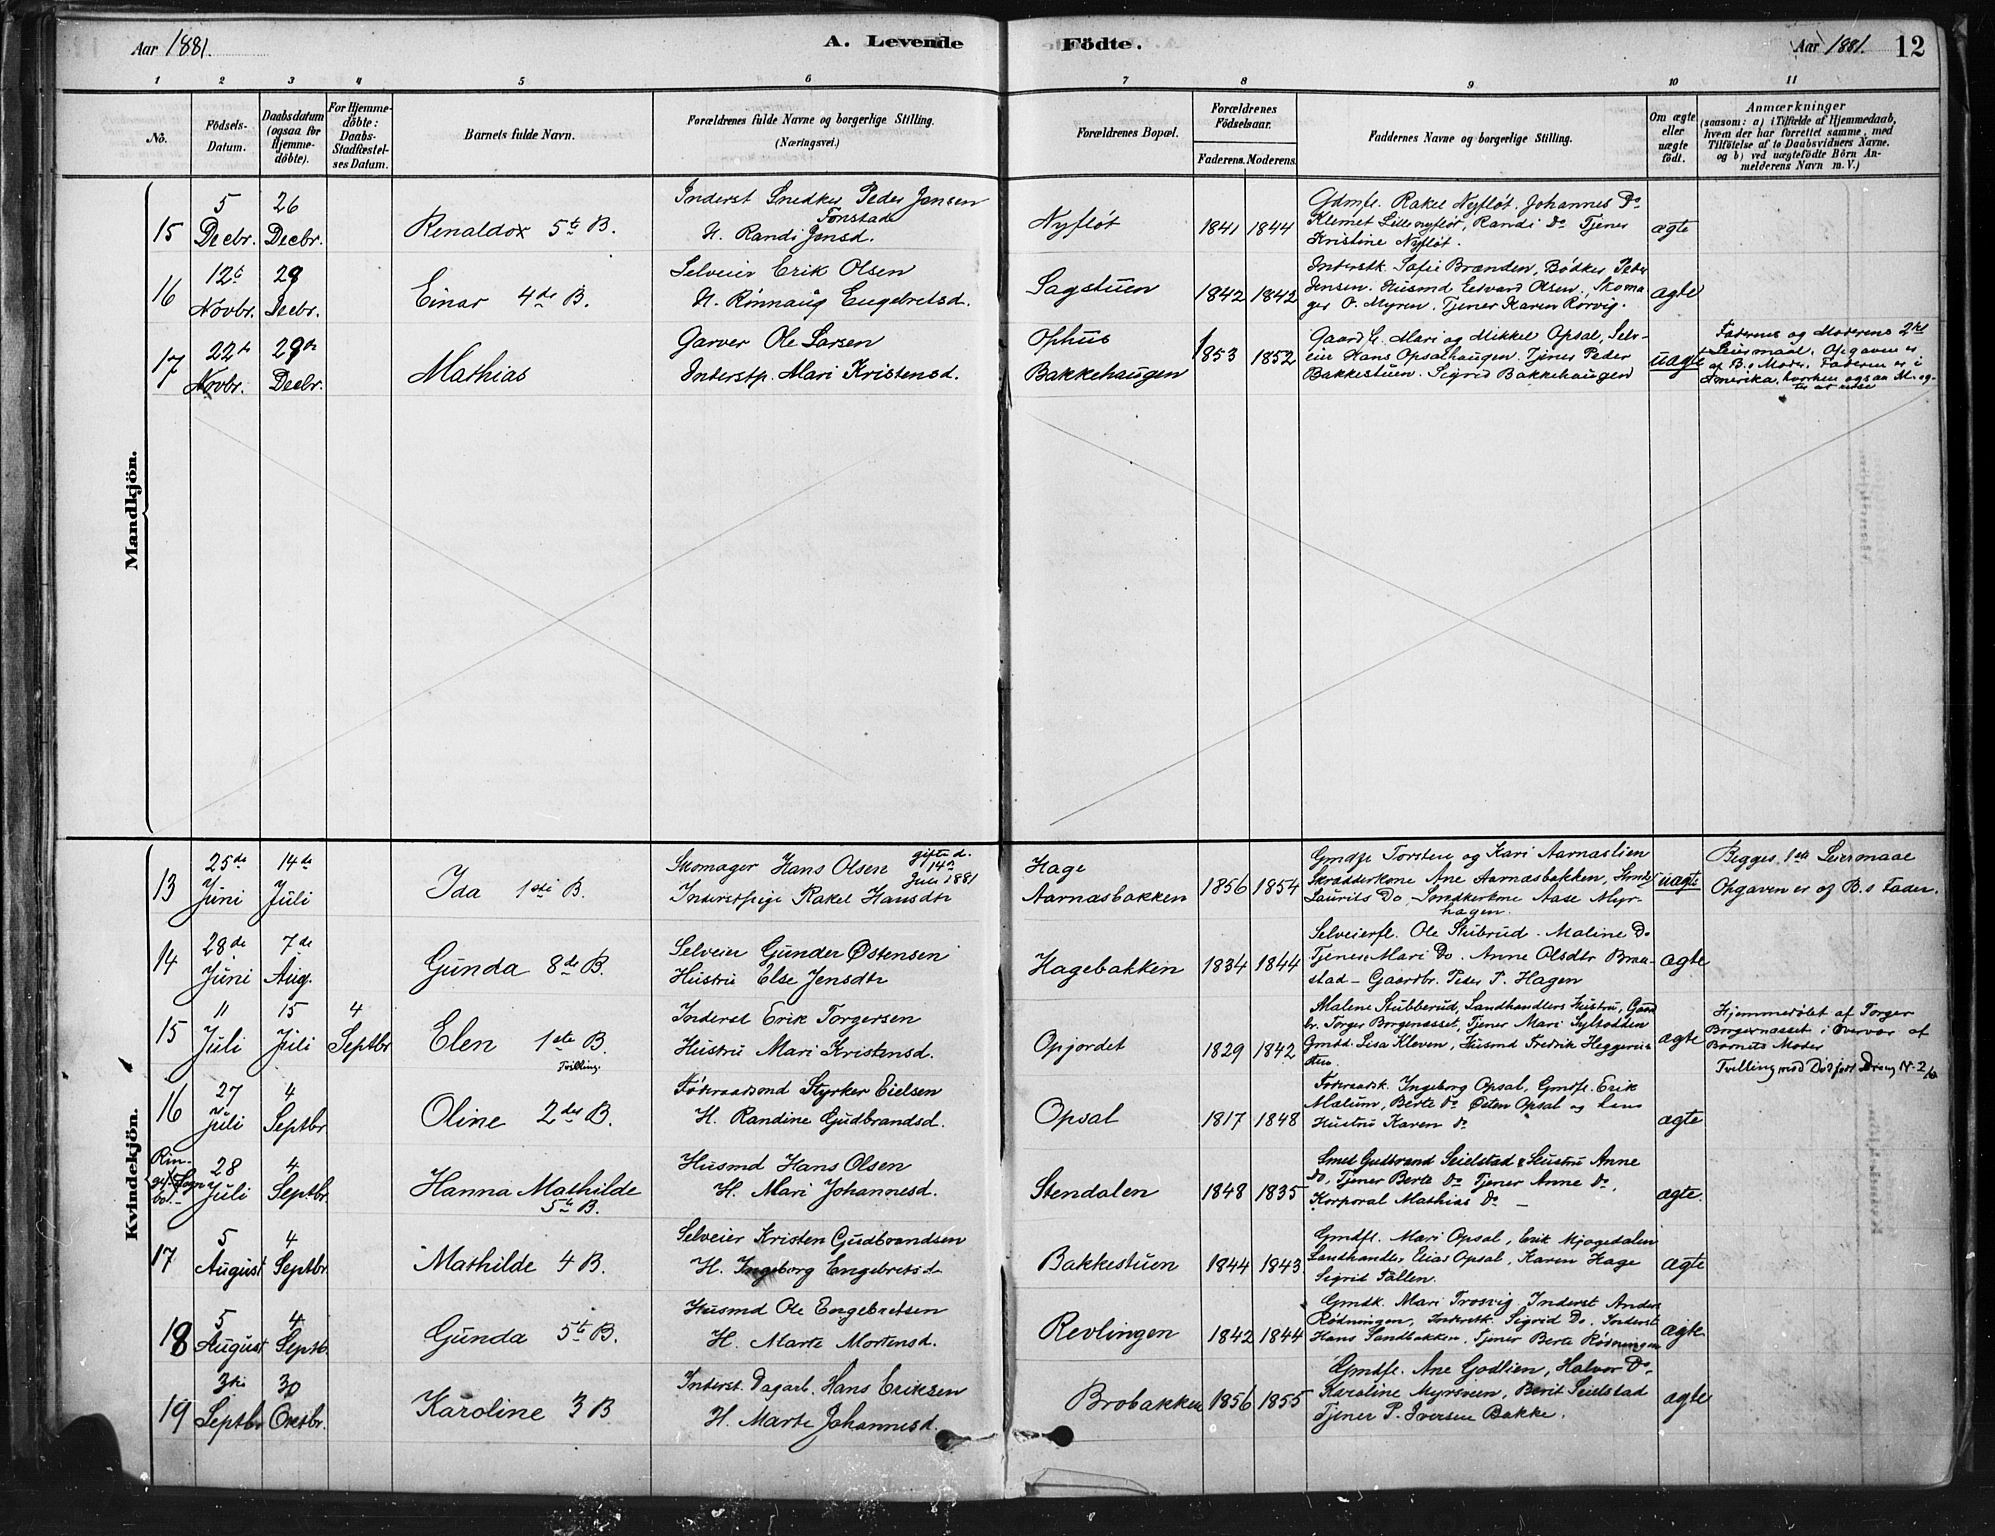 Aar 1881.
A. Levende Födte.
Aar 1881. 12
1 2 3 4 5 6 7 8 9 10 11
No.
Födsels-Datum.
Daabsdatum (ogsaa for Hjemme-döbte).
For Hjemme-döbte: Daabs-Stadfæstel-ses Datum.
Barnets fulde Navn.
Forældrenes fulde Navne og borgerlige Stilling. (Næringsvei.)
Forældrenes Bopæl.
Forældrenes Födselsaar.
Faderens. Moderens.
Faddernes Navne og borgerlige Stilling.
Om ægte eller uægte födt.
Anmærkninger
(saasom: a) i Tilfælde af Hjemmedaab, hvem der har forrettet samme, med Tilföielse af to Daabsvidners Navne, og b) ved uægtefödte Börn An-melderens Navn m. V.)
Mandkjön.
15
5 Decbr.
26 Decbr.
Renaldo 5te B.
Inderst Snedker Peder Jansen
Fonstad
H. Randi Jonsd.
Nyfløt
1841 1844
Gdmfl. Rakel Nyfløt. Johannes Do
Klemet Lillenyfløt, Randi Do Tjener
Kristine Nyfløt.
ægte
16
12te Novbr.
29 Decbr.
Einar 4de B.
Selveier Erik Olsen
H. Rønnaug Engebretsd.
Sagstuen
1842 1842
Inderstk. Sofie Brænden, Bødker Peder
Jensen. Husmd Edvard Olsen. Skoma-
ger O. Myren. Tjener Karen Rørvig.
ægte
17
22de Novbr.
29de Decbr.
Mathias
Garver Ole Larsen
Inderstp. Mari Kristensd.
Ophus
Bakkehaugen
1853 1852
Gaard Mari og Mikkel Opsal, Selv-
eier Hans Opsalhaugen. Tjener Peder
Bakkestuen. Sigrid Bakkehaugen
uægte
Faderens og Moderens 2det
Leiermaal. Opgaven er
af B.s Moder. Faderen er i
Amerika, hvorhen ogsaa M. og-
Kvindekjön.
13
25de Juni
14de Juli
Ida 1ste B.
Skomager Hans Olsen gifte d.
14de
Juli 1881
Inderstpige Rakel Hansdtr
Hage
Aarnasbakken
1856 1854
Gmdfl Torsten og Kari Aarnaslien
Skrædderkone Ane Aarnæsbakken,
Laurits Do Aase Myr-
hagen.
uægte
Begges 1ste Leiermaal
Opgaven er af B.s Fader.
14
28de Juni
7de Aug.
Gunda 8de B.
Selveier Gunder Østensen
Hustru Else Jensdtr
Hagebakken
1834 1844
Selveierfl. Ole Stubrud. Maline Do
Tjener Mari Do. Anne Olsdtr Braa-
stad - Gaardbr. Peder P. Hagen
ægte
15
11 Juli
15 Juli
4 Septbr
Elen 1ste B.
Tvilling.
Inderst Erik Torgersen
Hustru Mari Kristensd.
Opjordet
1829 1842
Malene Stubberud, Landhandlers Hustru, Gaard
br. Torger Borgenasset, Tjener Mari
Lisa Kleven, Husmd Fredrik
ægte
Hjemmedøbt af Torger
Borgernasset i Overvær af
Barnets Moder
Tvilling med Dødfødt Dreng No 2
16
27 Juli
4 Septbr
Oline 2det B.
Føderaadsmd Styrker Eielsen
H. Randine Gudbrandsd.
Opsal
1817 1848
Føderaadsk. Ingeborg Opsal, Gmdfl. Erik
Mælum, Berte Do Østen Opsal og hans
Hustru Karen Do
ægte
Rin-
28 Juli
4 Septbr
Hanna Mathilde
5te B.
Husmd Hans Olsen
H. Mari Johannesd.
Stendalen
1848 1835
Smed Gudbrand Seielstad & Hustru Anne
Do, Tjener Berte Do Tjener Anne Do,
Korporal Mathias Do
ægte.
17
5 August
4 Septbr
Mathilde 4 B.
Selveier Kristen Gudbrandsen
H. Ingeborg Engebretsd.
Bakkestuen
1844 1843
Gmdfl. Mari Opsal, Erik Mjøgedalen
Landhandler Elias Opsal, Karen Hage
Sigrid Fallen.
ægte
18
5 August
4 Septb.
Gunda 5te B.
Husmd Ole Engebretsen
H. Marte Mortensd.
Revlingen
1842 1844
Gmdk. Mari Trosvig, Inderst Anders
Rødningen, Inderstk. Sigrid Do. Inderst
Hans Sandbakken, Tjener Berte Rødningen
ægte
19
3de Septbr
30 Octbr.
Karoline 3 B
Inderst. Dagarb. Hans Eriksen
H. Marte Johannesd.
Brobakken
1856 1855
Gmdfl. Ane Godlien, Halvor Do.
Karoline Myrsveen, Berit Seielstad
Tjener P. Iversen Bakke.
ægte